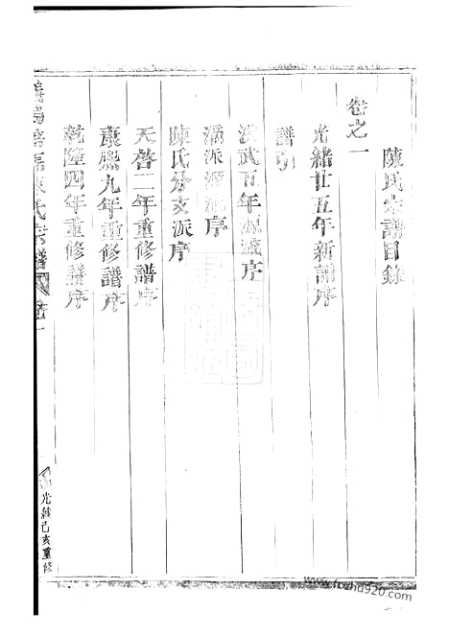 陳氏宗譜目錄
卷之一
光緒廿五年新譜序
譜引
洪武百年源流序
派源流序
陳氏分支派序
天啓二年重修譜序
康熙九年重修譜序
乾隆四年重修譜序
陳氏宗譜 卷一
光緒己亥重修
www.foshu920.com